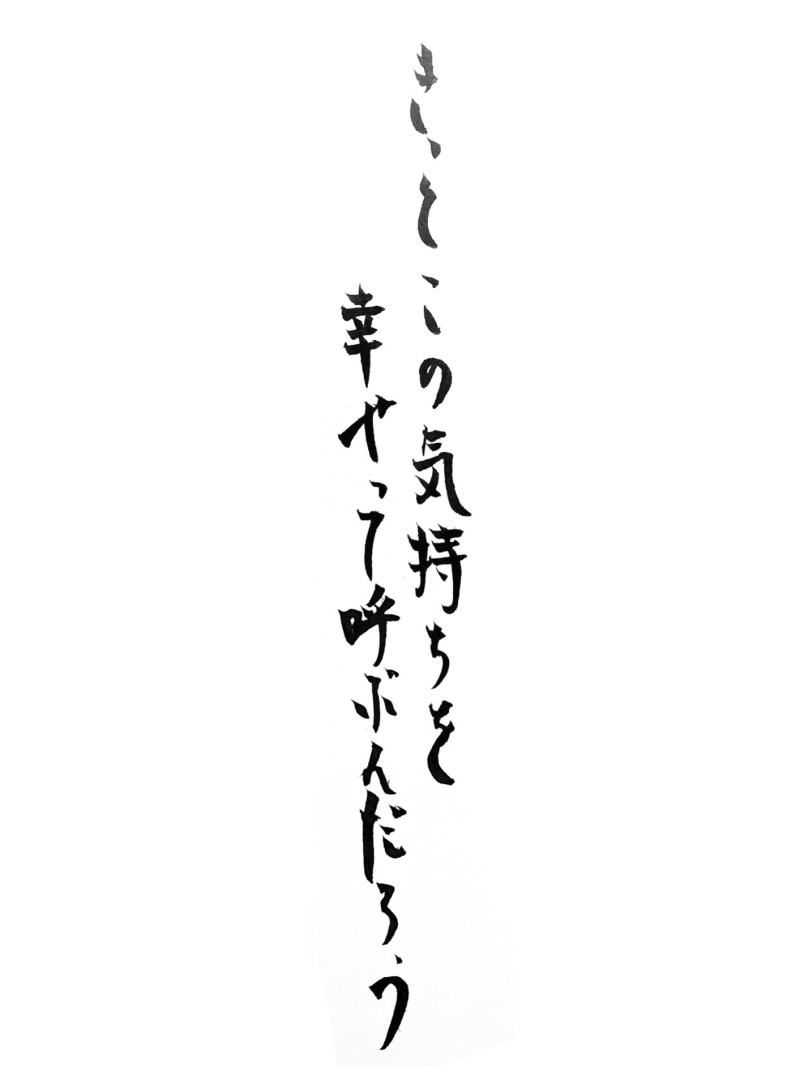 きっとこの気持ちを
幸せって呼ぶんだろう